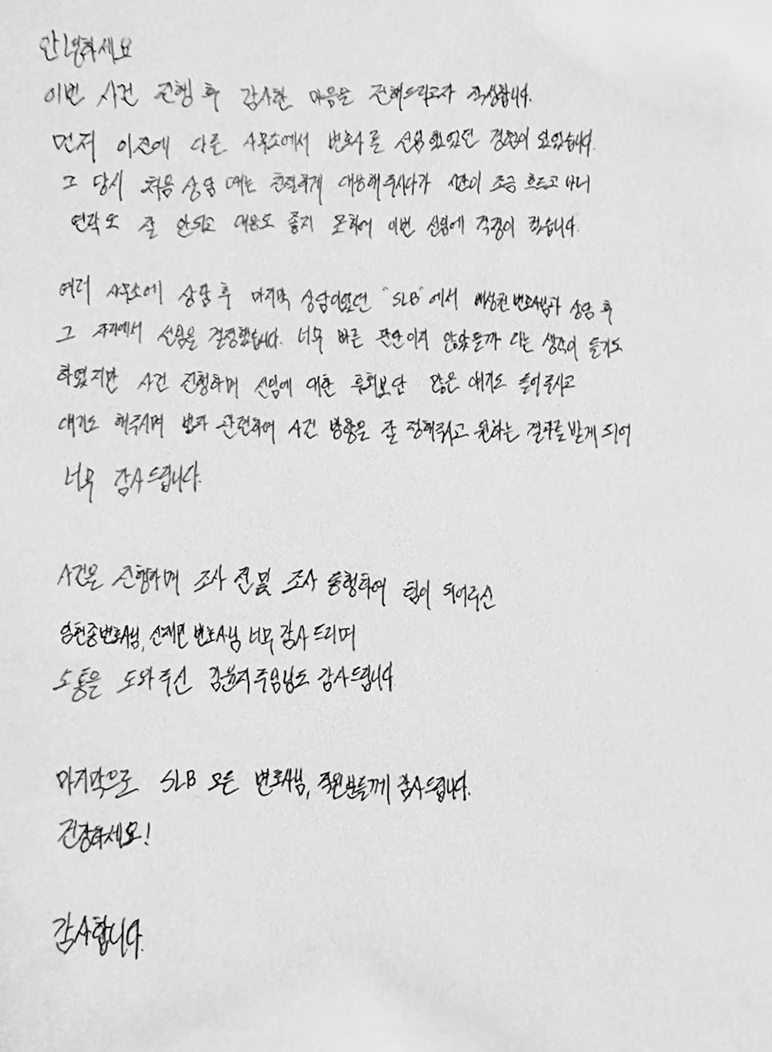 안녕하세요
이번 사건 진행 후 감사한 마음을 전해드리고자 작성합니다.
먼저 이전에 다른 사무소에서 변호사를 선임했었던 경험이 있었습니다.
그 당시 처음 상담 때는 친절하게 대응해주시다가 시간이 조금 흐르고 나니
연락도 잘 안되고 대응도 좋지 못하여 이번 선임에 걱정이 컸습니다.
여러 사무소에 상담 후 마지막 상담이었던 "SLB"에서 변호사님과 상담 후
그 자리에서 선임을 결정했습니다. 너무 빠른 판단이지 않았을까 라는 생각이 들기도
하였지만 사건 진행하며 선임에 대한 후회보단 많은 얘기도 들어주시고
얘기도 해주시며 법과 관련하여 사건 방향을 잘 정해주시고 원하는 결과를 받게 되어
너무 감사드립니다.
사건을 진행하며 조사 전 및 조사 동행하여 힘이 되어주신
임현종변호사님, 신재민 변호사님 너무 감사드리며
소통을 도와주신 김윤지주임님도 감사드립니다
마지막으로 SLB 모든 변호사님, 직원분들께 감사드립니다.
건강하세요!
감사합니다.